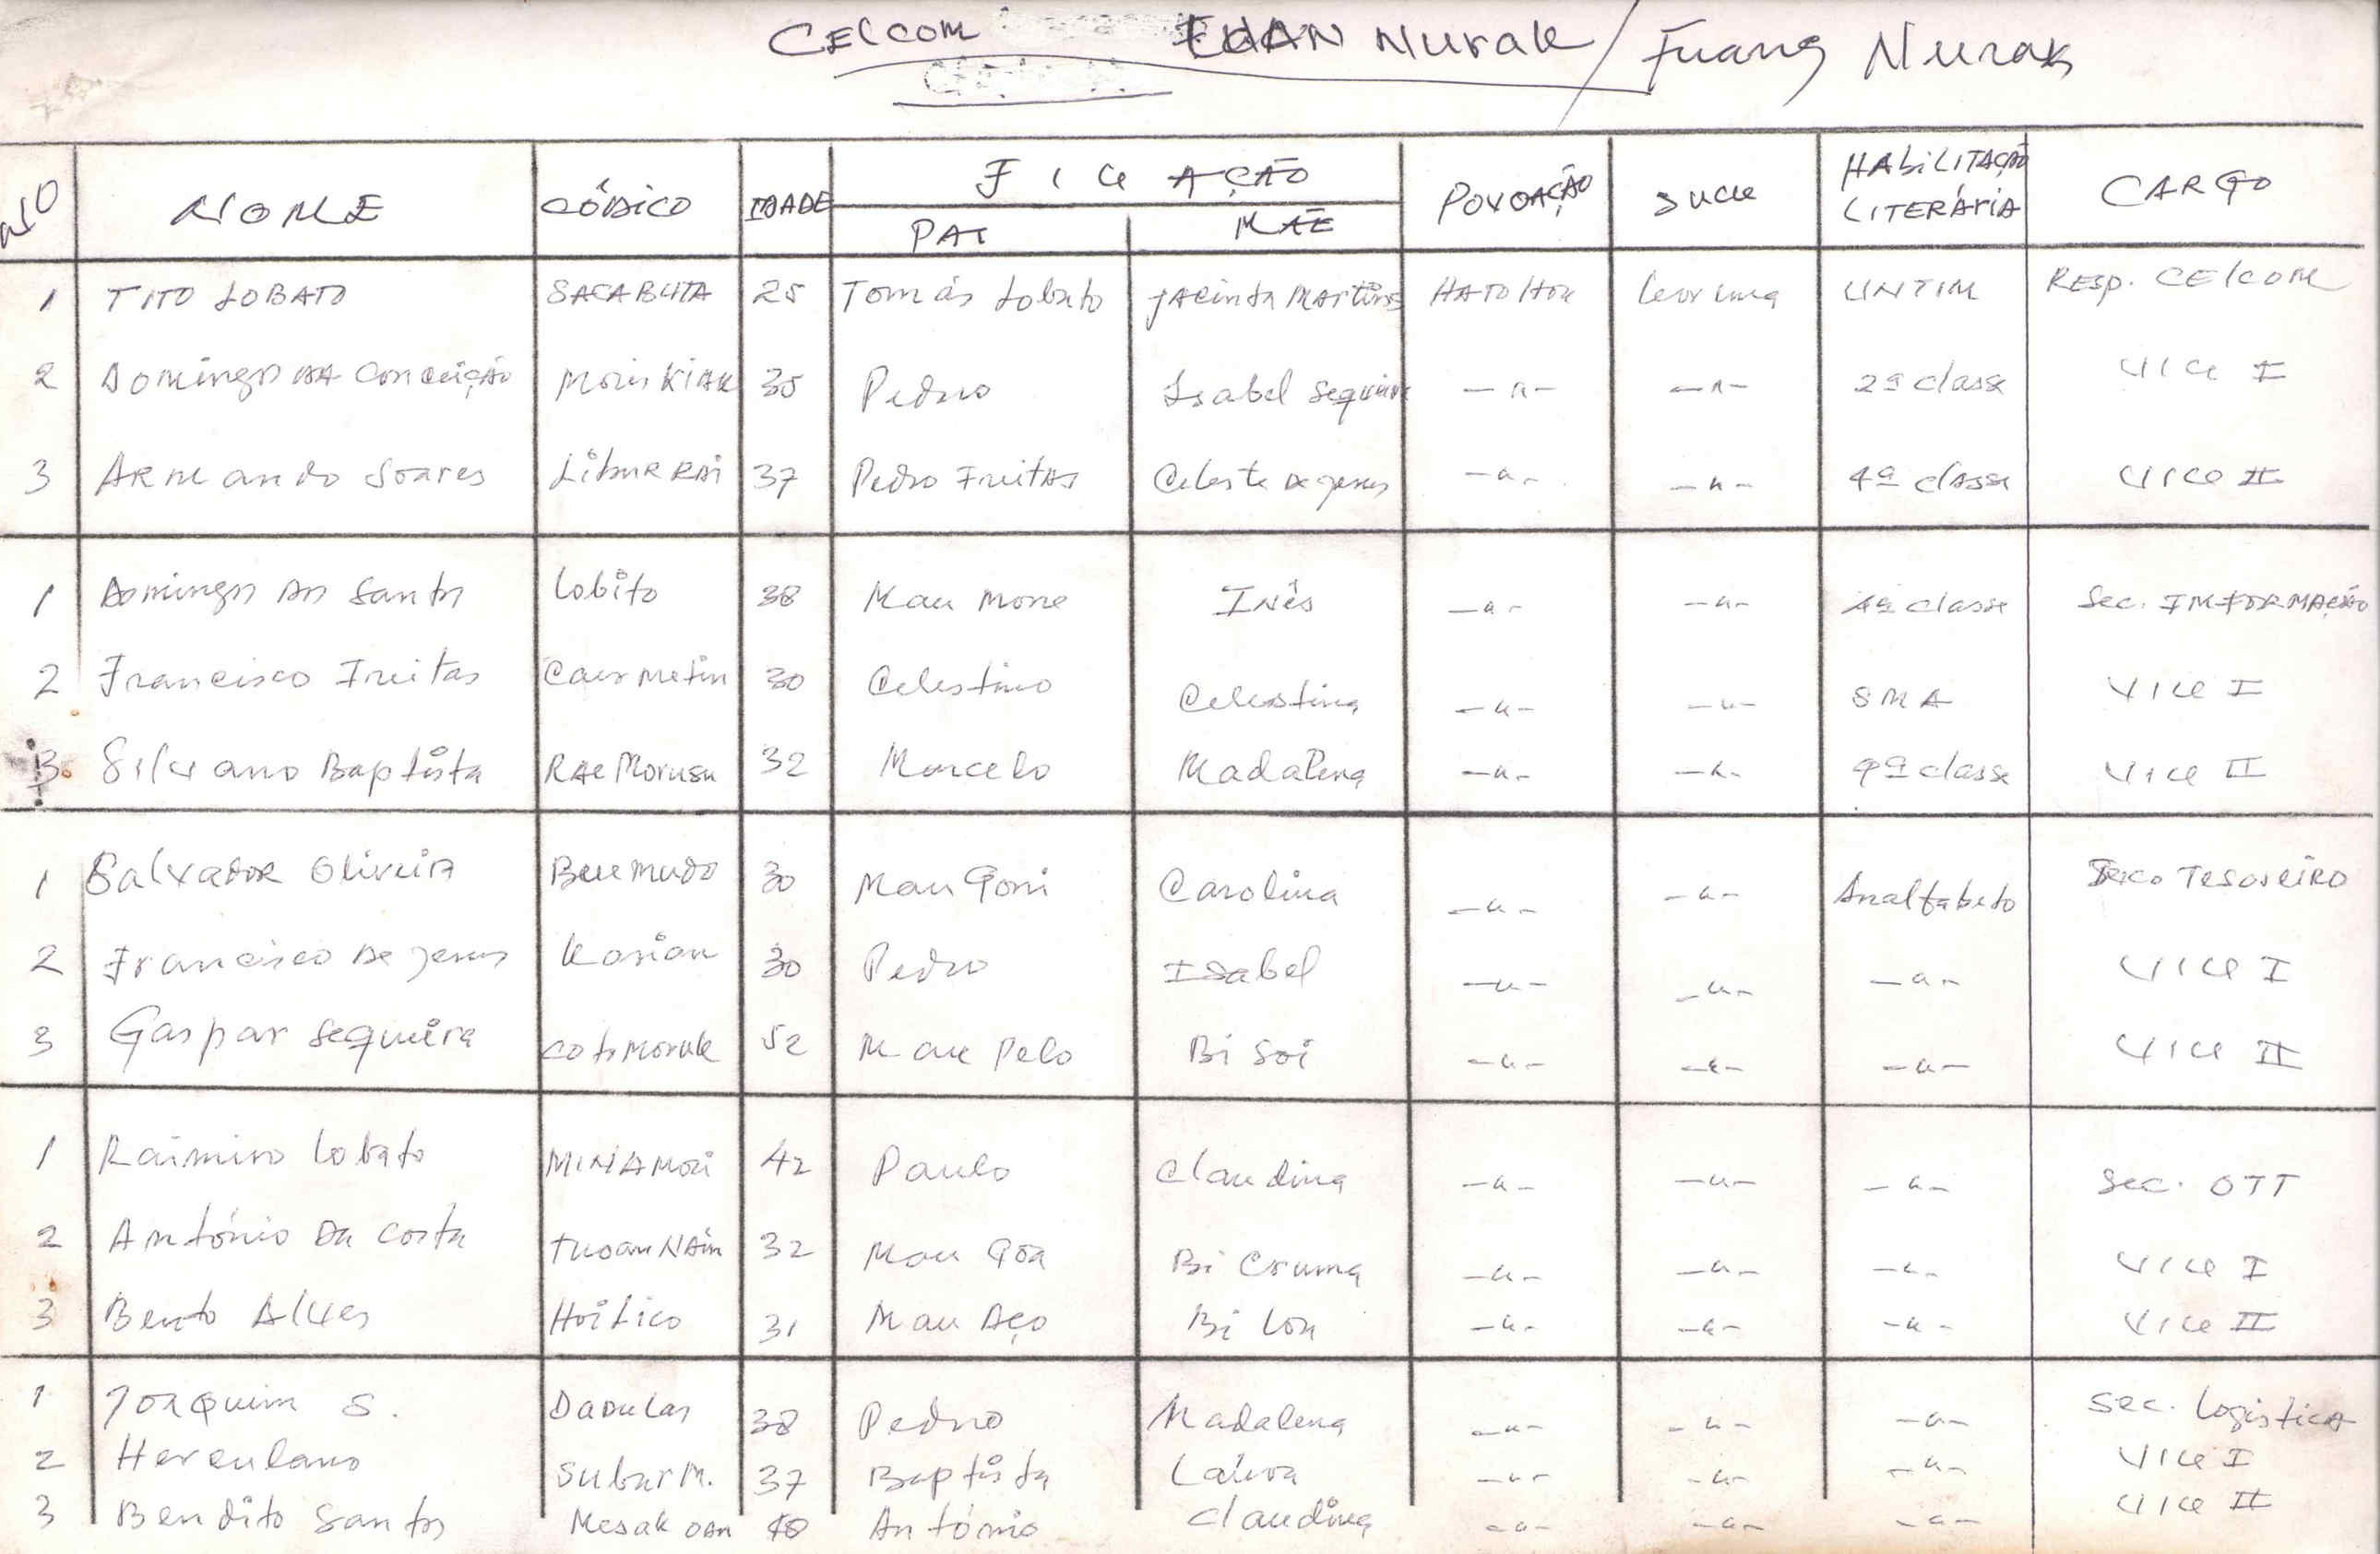 CELCOM FUAN Nurak / Fuang Nurak
NO NOME CÓDICO IDADE FICAÇÃO PAI MÃE POVOAÇÃO SUCU HABILITAÇÃO LITERÁRIA CARGO
1 TITO LOBATO SACABUTA 25 Tomás Lobato Jacinta Martins HATOLHOU UNTIM RESP. CELCOM
2 Domingos DA Conceição Moris KIAK 35 Pedro Isabel Sequeira -"- -"- 2ª classe VICE I
3 ARMando Soares LIBUR RAI 37 Pedro Freitas Celeste De Jesus -"- -"- 4ª classe VICE II
1 Domingos Dos Santos Lobito 38 Mau Mone Inês -"- -"- 4ª classe Sec. IMFORMAÇÃO
2 Francisco Freitas 30 Celestino Celestina -"- -"- SMA VICE I
3 Silvano Baptista RAE Morusu 32 Marcelo Madalena -"- -"- 4ª classe VICE II
1 Salvador Oliveira Beremudo 30 Mau Goni Carolina -"- -"- Analfabeto Tesoureiro
2 Francisco De Jesus Kasian 30 Pedro Isabel -"- -"- -"- VICE I
3 Gaspar Sequeira 52 Mau Pelo Bi Soi -"- -"- -"- VICE II
1 Raimiro Lobato MINAMORI 42 Paulo Claudina -"- -"- -"- Sec. OTT
2 António Da Costa 32 Mau Goa Bi Cruma -"- -"- -"- VICE I
3 Bento Alves Hoilico 31 Mau Aço Bi Lou -"- -"- -"- VICE II
1 Joaquim S. Dadulas 38 Pedro Madalena -"- -"- -"- Sec. Logistica
2 Herculano Subar M. 37 Baptista -"- -"- -"- VICE I
3 Bendito Santos Mesak oan 40 António Claudina -"- -"- -"- VICE II